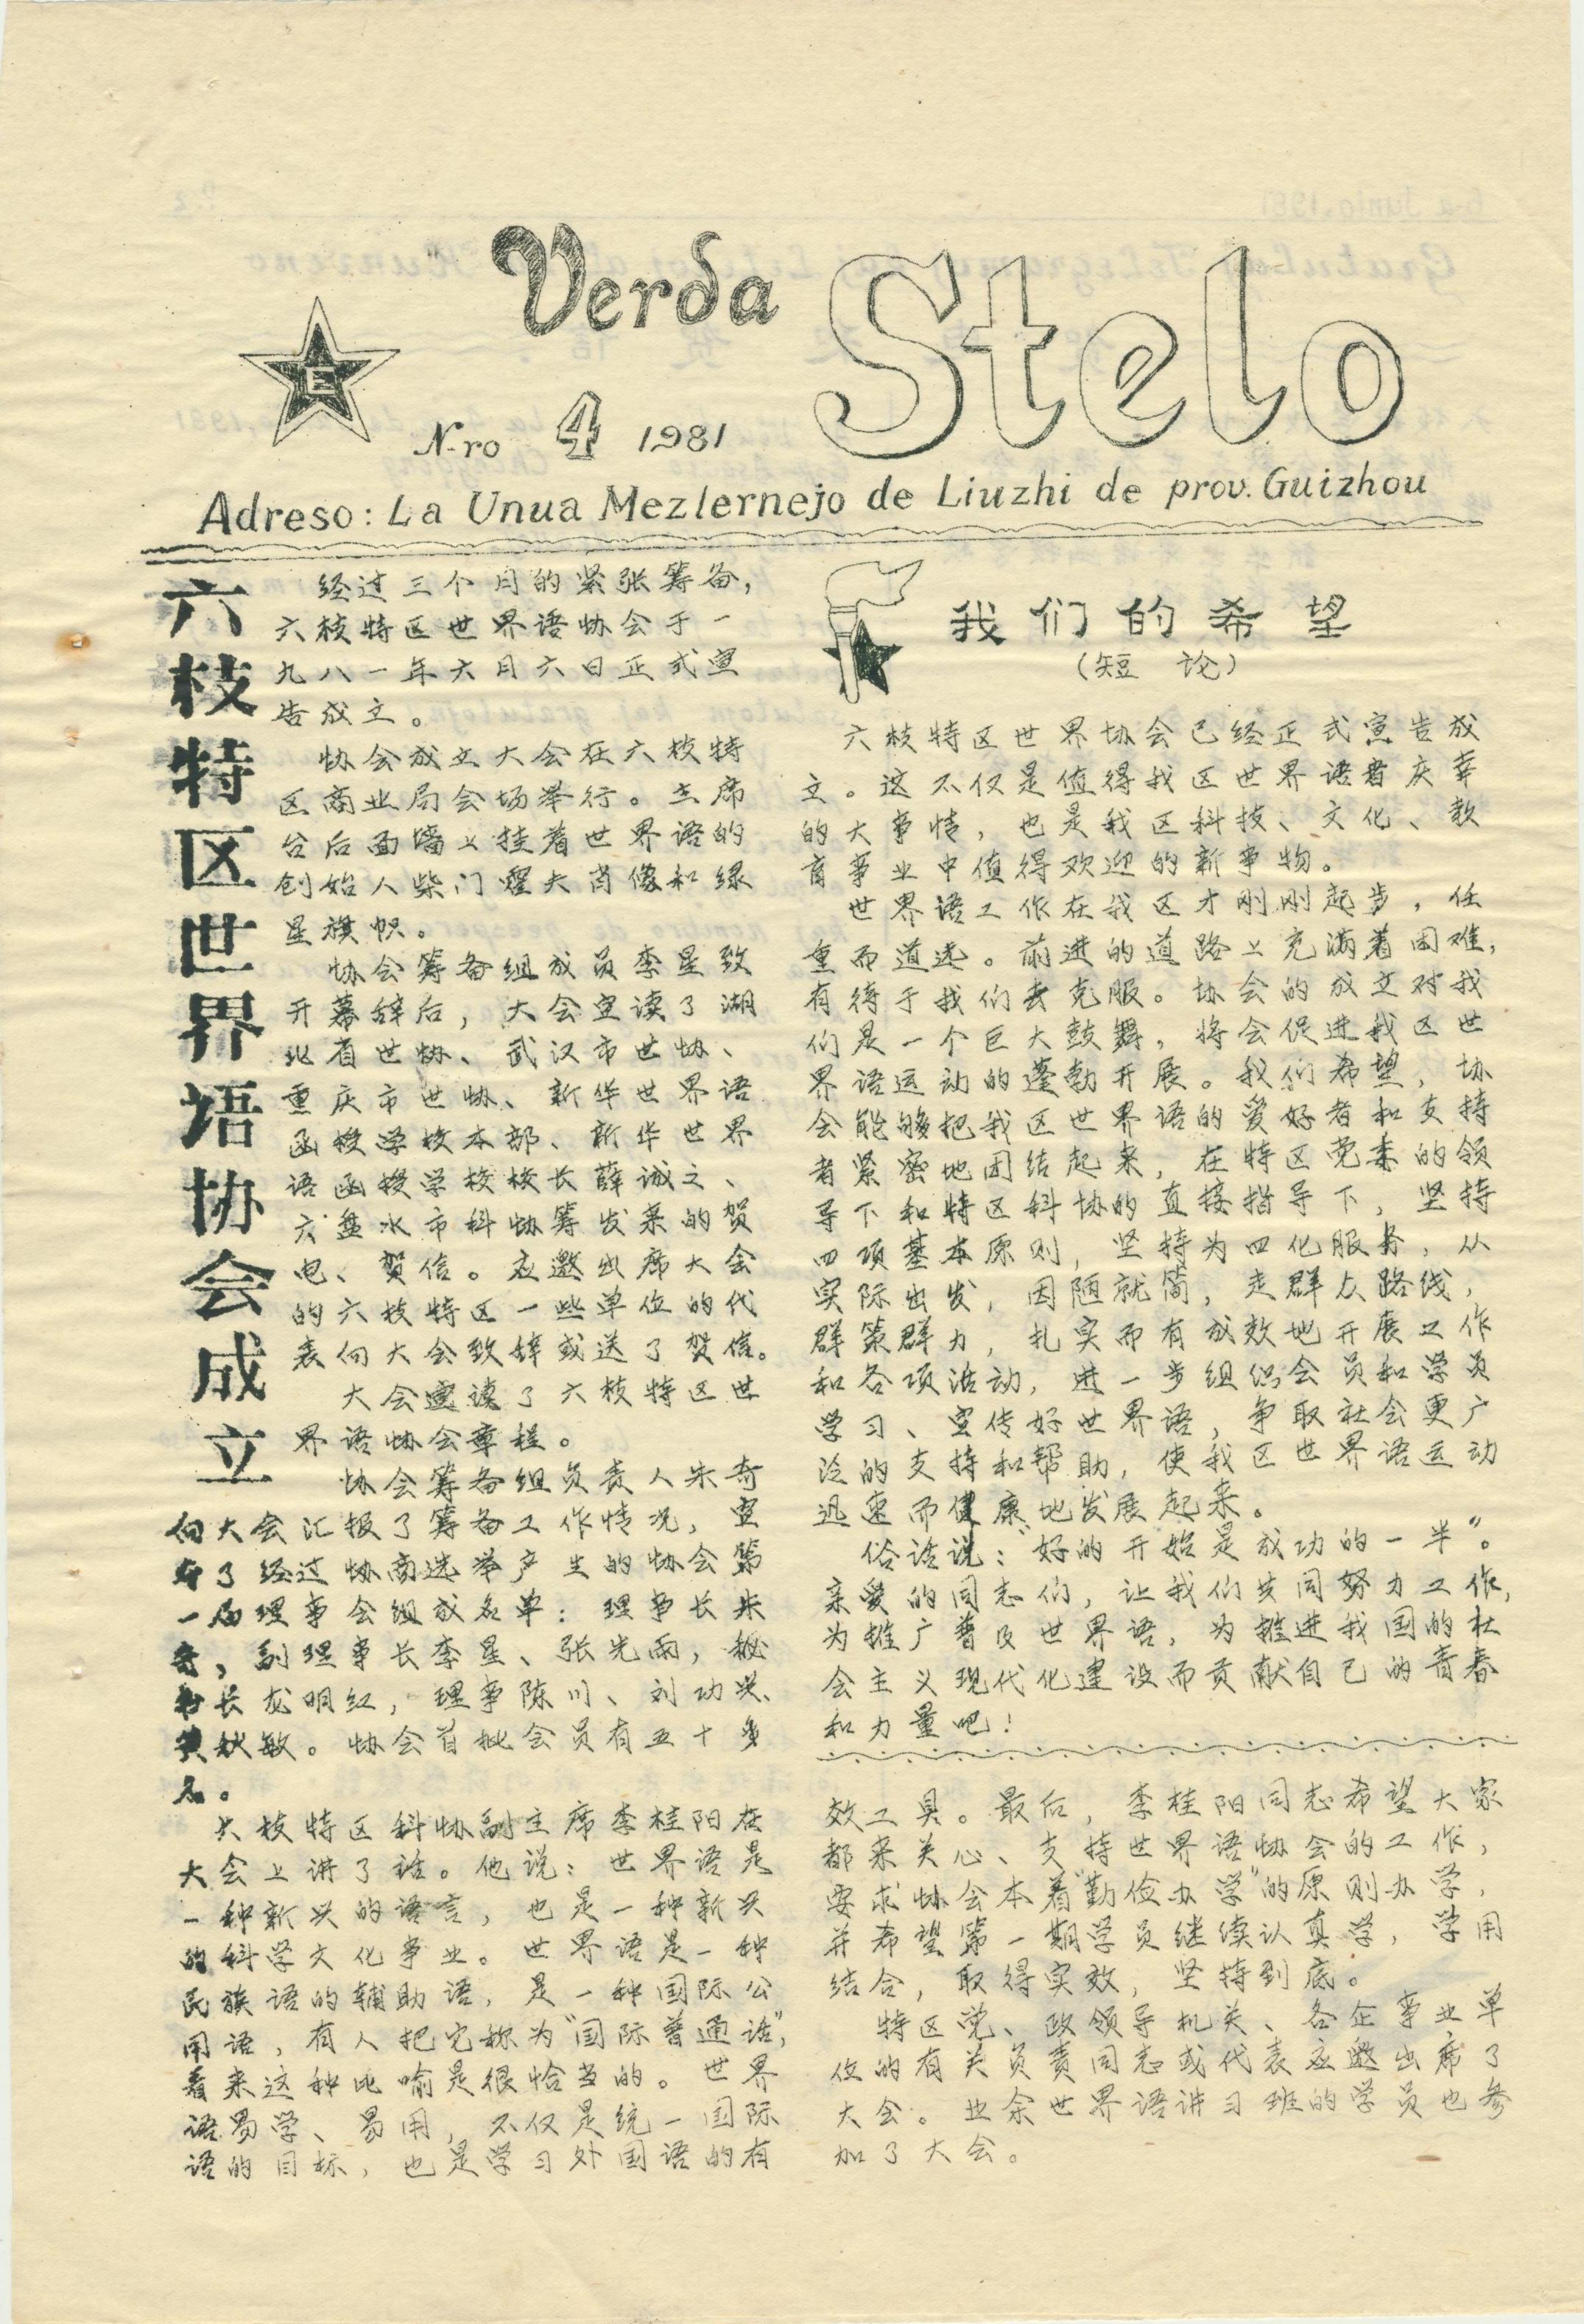 Verda Stelo
E
N-ro 4 1981
Adreso: La Unua Mezlernejo de Liuzhi de prov. Guizhou
六枝特区世界语协会成立
经过三个月的紧张筹备，
六枝特区世界语协会于一
九八一年六月六日正式宣
告成立。
协会成立大会在六枝特
区商业局会场举行。主席
台后面墙上挂着世界语的
创始人柴门霍夫肖像和绿
星旗帜。
协会筹备组成员李星致
开幕辞后，大会宣读了湖
北省世协、武汉市世协、
重庆市世协、新华世界语
函授学校本部、新华世界
语函授学校校长薛诚之、
六盘水市科协筹发来的贺
电、贺信。应邀出席大会
的六枝特区一些单位的代
表向大会致辞或送了贺信。
大会宣读了六枝特区世
界语协会章程。
协会筹备组负责人朱奇
向大会汇报了筹备工作情况，宣
布了经过协商选举产生的协会第
一届理事会组成名单：理事长朱
奇，副理事长李星、张光雨，秘
书长龙明红，理事陈川、刘功兴、
黄秋敏。协会首批会员有五十多
名。
六枝特区科协副主席李桂阳在
大会上讲了话。他说：世界语是
一种新兴的语言，也是一种新兴
的科学文化事业。世界语是一种
民族语的辅助语，是一种国际公
用语，有人把它称为“国际普通话”，
看来这种比喻是很恰当的。世界
语易学、易用，不仅是统一国际
语的目标，也是学习外国语的有
我们的希望
（短论）
六枝特区世界协会已经正式宣告成
立。这不仅是值得我区世界语者庆幸
的大事情，也是我区科技、文化、教
育事业中值得欢迎的新事物。
世界语工作在我区才刚刚起步，任
重而道远。前进的道路上充满着困难，
有待于我们去克服。协会的成立对我
们是一个巨大鼓舞，将会促进我区世
界语运动的蓬勃开展。我们希望，协
会能够把我区世界语的爱好者和支持
者紧密地团结起来，在特区党委的领
导下和特区科协的直接指导下，坚持
四项基本原则，坚持为四化服务，从
实际出发，因陋就简，走群众路线，
群策群力，扎实而有成效地开展工作
和各项活动，进一步组织会员和学员
学习、宣传好世界语，争取社会更广
泛的支持和帮助，使我区世界语运动
迅速而健康地发展起来。
俗话说：“好的开始是成功的一半”。
亲爱的同志们，让我们共同努力工作，
为推广普及世界语，为推进我国的社
会主义现代化建设而贡献自己的青春
和力量吧！
效工具。最后，李桂阳同志希望大家
都来关心、支持世界语协会的工作，
要求协会本着“勤俭办学”的原则办学，
并希望第一期学员继续认真学，学用
结合，取得实效，坚持到底。
特区党、政领导机关、各企事业单
位的有关负责同志或代表应邀出席了
大会。业余世界语讲习班的学员也参
加了大会。